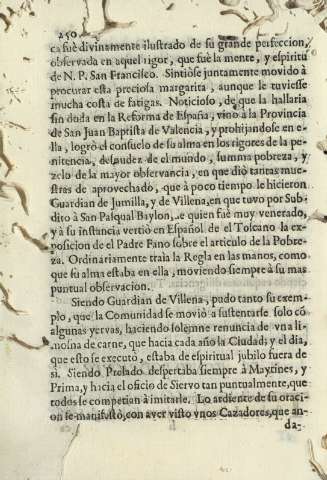 250
ca fuè divinamente ilustrado de su grande perfeccion,
observada en aquel rigor, que fuè la mente, y espiritu
de N. P. San Francisco. Sintiòse juntamente movido à
procurar esta preciosa margarita, aunque le tuviesse
mucha costa de fatigas. Noticioso, de que la hallaria
sin duda en la Reforma de España, vino à la Provincia
de San Juan Baptista de Valencia, y prohijandose en e-
lla, logrò el consuelo de su alma en los rigores de la pe-
nitencia, desnudez de el mundo, summa pobreza, y
zelo de la mayor observancia, en que diò tantas mue-
stras de aprovechado, que à poco tiempo le hicieron
Guardian de Jumilla, y de Villena, en que tuvo por Sub-
dito à San Pasqual Baylon, de quien fuè muy venerado,
y à su instancia vertiò en Español de el Toscano la ex-
posicion de el Padre Fano sobre el articulo de la Pobre-
za. Ordinariamente traìa la Regla en las manos, como
que su alma estaba en ella, moviendo siempre à su mas
puntual observacion.
Siendo Guardian de Villena, pudo tanto su exem-
plo, que la Comunidad se moviò a sustentarse solo cõ
algunas yervas, haciendo solemne renuncia de vna li-
mosna de carne, que hacia cada año la Ciudad; y el dia,
que esto se executò, estaba de espiritual jubilo fuera de
si. Siendo Prelado despertaba siempre à Maytines, y
Prima, y hacia el oficio de Siervo tan puntualmente, que
todos se competian à imitarle. Lo ardiente de su oraci-
on se manifestò, con aver visto vnos Cazadores, que an-
da-